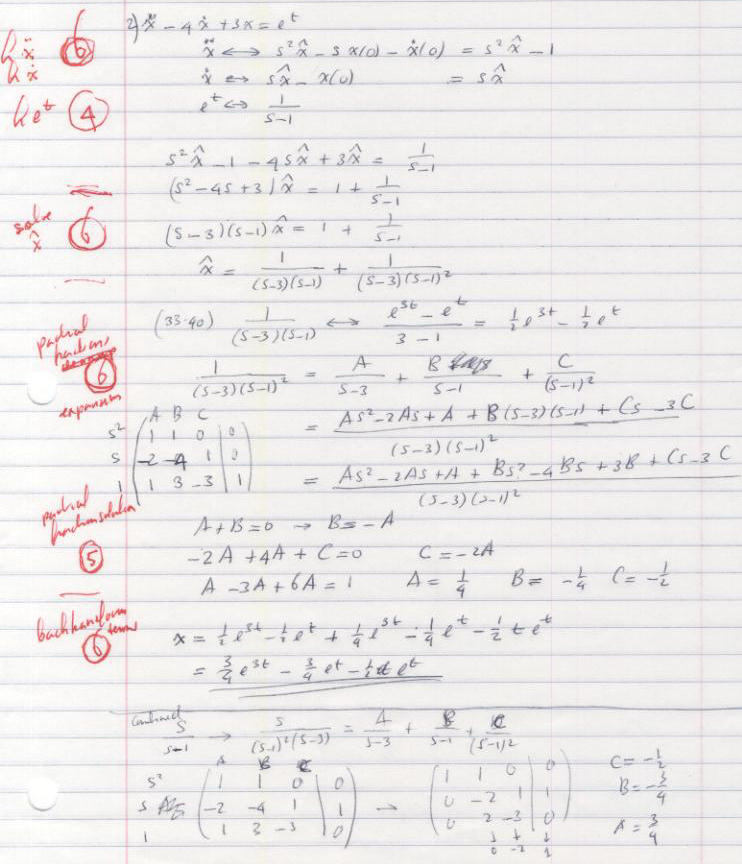 2) ẍ - 4ẋ + 3x = e^t
ẍ ↔ s²x̂ - s x(0) - ẋ(0) = s²x̂ - 1
ẋ ↔ sx̂ - x(0) = sx̂
e^t ↔ 1/(s-1)
ẍ 6
ẋ
e^t 4
s²x̂ - 1 - 4sx̂ + 3x̂ = 1/(s-1)
(s² - 4s + 3)x̂ = 1 + 1/(s-1)
solve x̂ 6
(s-3)(s-1)x̂ = 1 + 1/(s-1)
x̂ = 1/((s-3)(s-1)) + 1/((s-3)(s-1)²)
(33.40) 1/((s-3)(s-1)) ↔ (e^3t - e^t)/(3 - 1) = ½e^3t - ½e^t
partial
fractions
6
expansion
1/((s-3)(s-1)²) = A/(s-3) + B/(s-1) + C/(s-1)²
= (As² - 2As + A + B(s-3)(s-1) + Cs - 3C)/((s-3)(s-1)²)
= (As² - 2As + A + Bs² - 4Bs + 3B + Cs - 3C)/((s-3)(s-1)²)
A B C
s² 1 1 0 | 0
s -2 -4 1 | 0
1 1 3 -3 | 1
partial
fraction solution
5
A + B = 0 → B = -A
-2A + 4A + C = 0 C = -2A
A - 3A + 6A = 1 A = ¼ B = -¼ C = -½
back transform
terms
6
x = ½e^3t - ½e^t + ¼e^3t - ¼e^t - ½te^t
= ¾e^3t - ¾e^t - ½te^t
Combined
s/(s-1) → s/((s-1)²(s-3)) = A/(s-3) + B/(s-1) + C/(s-1)²
A B C
s² 1 1 0 | 0
s -2 -4 1 | 1
1 1 3 -3 | 0
→
1 1 0 | 0
0 -2 1 | 1
0 2 -3 | 0
0 -2 1
C = -½
B = -¾
A = ¾